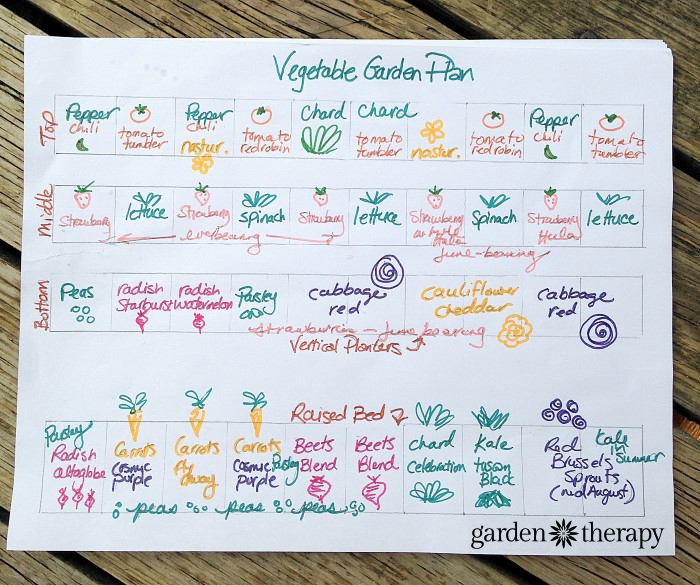 Vegetable Garden Plan
Top
Pepper chili
tomato tumbler
Pepper chili nastur.
tomato red robin
Chard
Chard tomato tumbler
nastur.
tomato red robin
Pepper chili
tomato tumbler
Middle
Strawberry
lettuce
Strawberry
spinach
Strawberry
lettuce
Strawberry
Spinach
Strawberry Hula
lettuce
everbearing
June-bearing
Bottom
Peas
radish Starburst
radish watermelon
Parsley
cabbage red
cauliflower cheddar
cabbage red
strawberries - June bearing
Vertical Planters
Raised Bed
Parsley Radish
Carrots Cosmic purple
Carrots Fly Away
Carrots Cosmic purple
Parsley
Beets Blend
Beets Blend
chard celebration
Kale tuscan Black
Red Brussels Sprouts (mid August)
Kale in Summer
peas peas peas
garden therapy